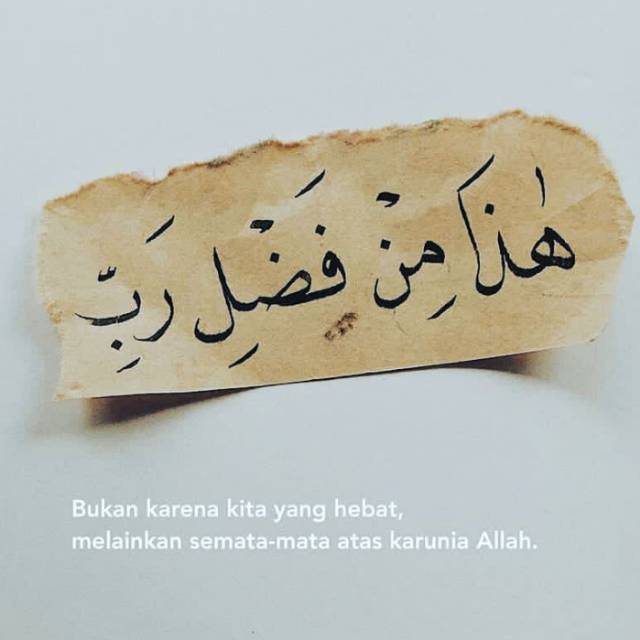 هٰذَا مِنْ فَضْلِ رَبِّ
Bukan karena kita yang hebat,
melainkan semata-mata atas karunia Allah.